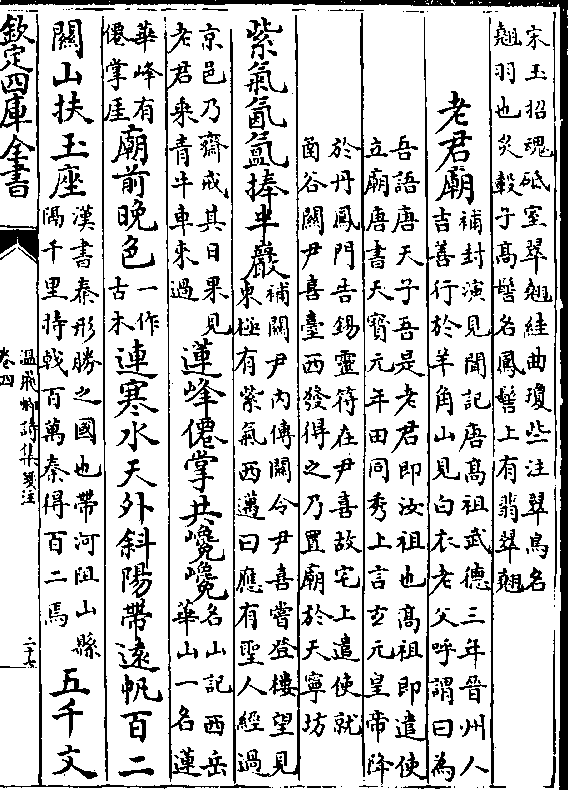 宋玉招魂砥室翠翹絓曲瓊些注翠鳥名
翹羽也炙轂子高髻名鳳髻上有翡翠翹
老君廟
補封演見聞記唐高祖武德三年晉州人
吉善行於羊角山見白衣老父呼謂曰為
吾語唐天子吾是老君即汝祖也高祖即遣使
立廟唐書天寳元年田同秀上言玄元皇帝降
於丹鳳門告錫靈符在尹喜故宅上遣使就
函谷關尹喜臺西發得之乃置廟於天寧坊
紫氣氤氲捧半巖
補關尹内傳關令尹喜嘗登樓望見
東極有紫氣西邁曰應有聖人經過
京邑乃齋戒其日果見
老君乘青牛車來過
蓮峰僊掌共巉巉
名山記西岳
華山一名蓮
華峰有
僊掌厓
廟前晚色
一作
古木
連寒水天外斜陽帶遠帆百二
關山扶玉座
漢書秦形勝之國也帶河阻山縣
隔千里持戟百萬秦得百二焉
五千文
欽定四庫全書
溫飛卿詩集箋注
卷四
二十七